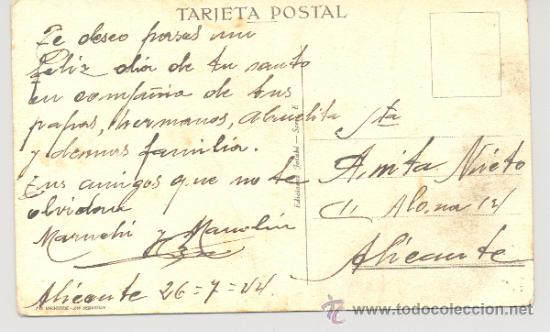 TARJETA POSTAL
Te deseo pases un
feliz dia de tu santo
en compañia de tus
papas, hermanos, abuelita
y demas familia.
Tus amigos que no te
olvidan
Maruchi y Manolin
Alicante 26=7=44
Sta
Anita Nieto
Alicante
todocoleccion